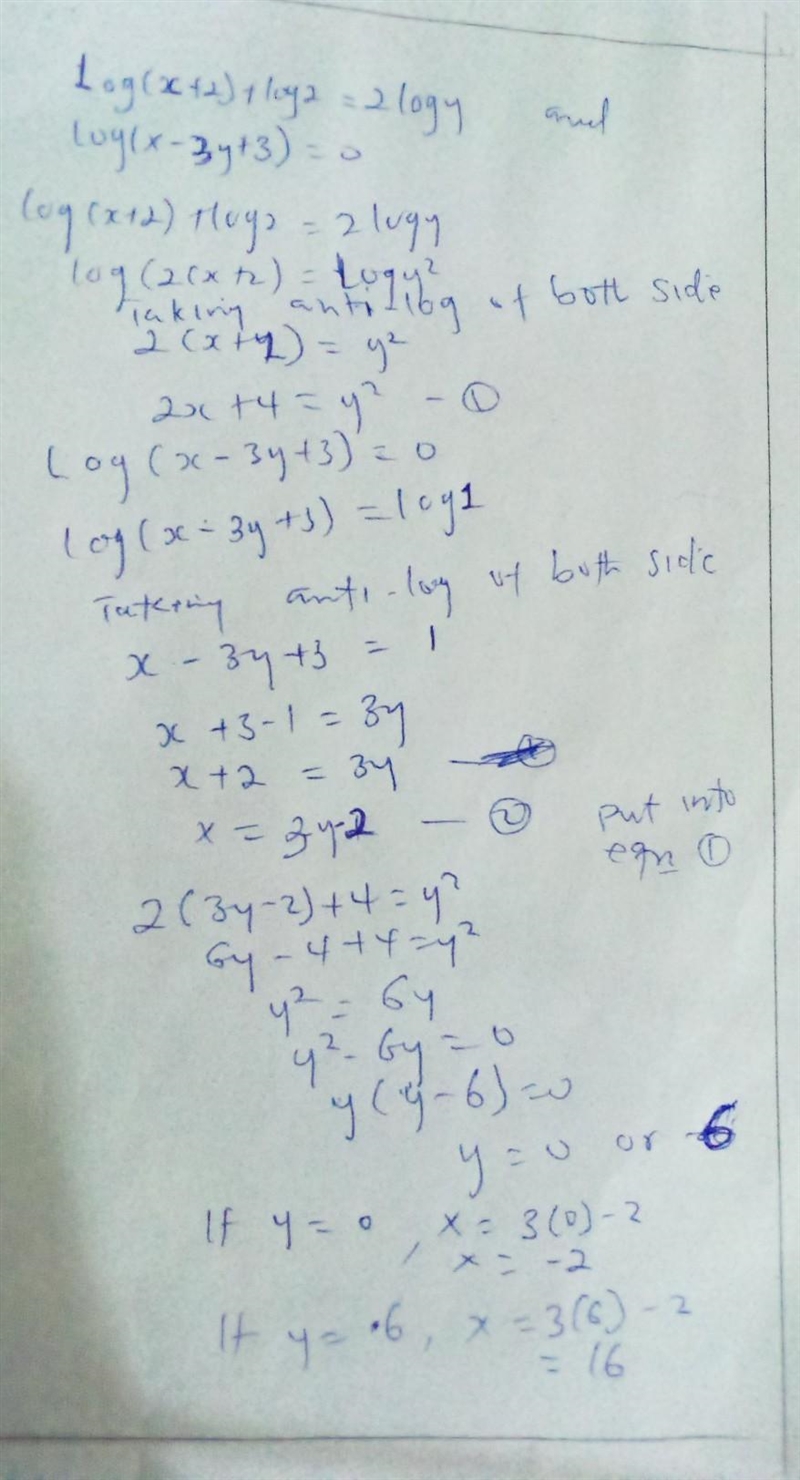 Log(x+2)+log2 = 2logy and
log(x-3y+3) = 0
log(x+2)+log2 = 2logy
log(2(x+2) = Logy²
Taking anti-log of both side
2(x+2) = y²
2x+4 = y² - ①
Log(x-3y+3) = 0
log(x-3y+3) = log1
Taking anti-log of both side
x - 3y+3 = 1
x+3-1 = 3y
x+2 = 3y
x = 3y-2 - ② put into
eqn ①
2(3y-2)+4=y²
6y-4+4=y²
y² = 6y
y²-6y=0
y(y-6)=0
y=0 or 6
If y=0, x=3(0)-2
x=-2
If y=6, x=3(6)-2
=16